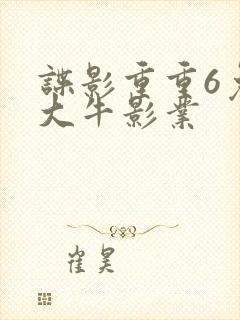 諜影重重6
大牛影業
崔昊